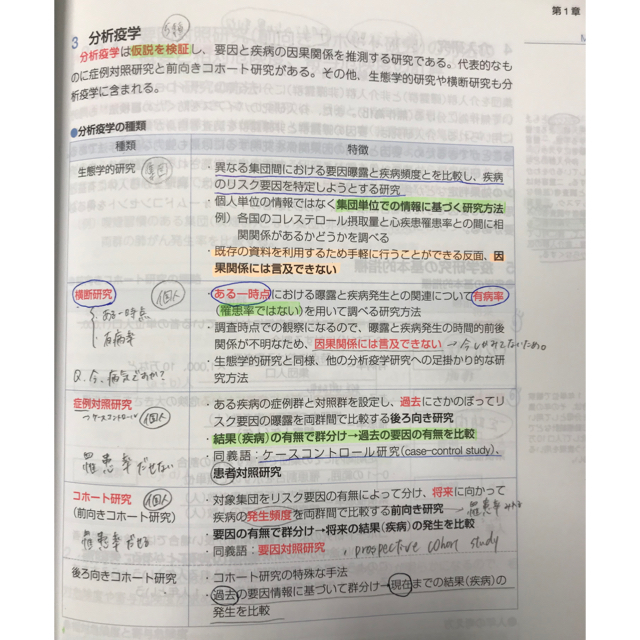 第1章
3 分析疫学
分析疫学は仮説を検証し、要因と疾病の因果関係を推測する研究である。代表的なも
のに症例対照研究と前向きコホート研究がある。その他、生態学的研究や横断研究も分
析疫学に含まれる。
●分析疫学の種類
種類 特徴
生態学的研究
・異なる集団間における要因曝露と疾病頻度とを比較し、疾病
のリスク要因を特定しようとする研究
・個人単位の情報ではなく集団単位での情報に基づく研究方法
例）各国のコレステロール摂取量と心疾患罹患率との間に相
関関係があるかどうかを調べる
・既存の資料を利用するため手軽に行うことができる反面、因
果関係には言及できない
横断研究 個人
ある一時点
有病率
Q.今、病気ですか？
・ある一時点における曝露と疾病発生との関連について有病率
（罹患率ではない）を用いて調べる研究方法
・調査時点での観察になるので、曝露と疾病発生の時間的前後
関係が不明なため、因果関係には言及できない →今しかみてないため。
・生態学的研究と同様、他の分析疫学研究への足掛かり的な研
究方法
症例対照研究
→ケースコントロール 個人
罹患率だせない
・ある疾病の症例群と対照群を設定し、過去にさかのぼってリ
スク要因の曝露を両群間で比較する後ろ向き研究
・結果（疾病）の有無で群分け→過去の要因の有無を比較
・同義語：ケースコントロール研究（case-control study）、
患者対照研究
コホート研究 個人
（前向きコホート研究）
罹患率だせる
・対象集団をリスク要因の有無によって分け、将来に向かって
疾病の発生頻度を両群間で比較する前向き研究 罹患率
要因の有無で群分け→将来の結果（疾病）の発生を比較
・同義語：要因対照研究 , prospective cohort study
後ろ向きコホート研究
・コホート研究の特殊な手法
・過去の要因情報に基づいて群分け→現在までの結果（疾病）の
発生を比較